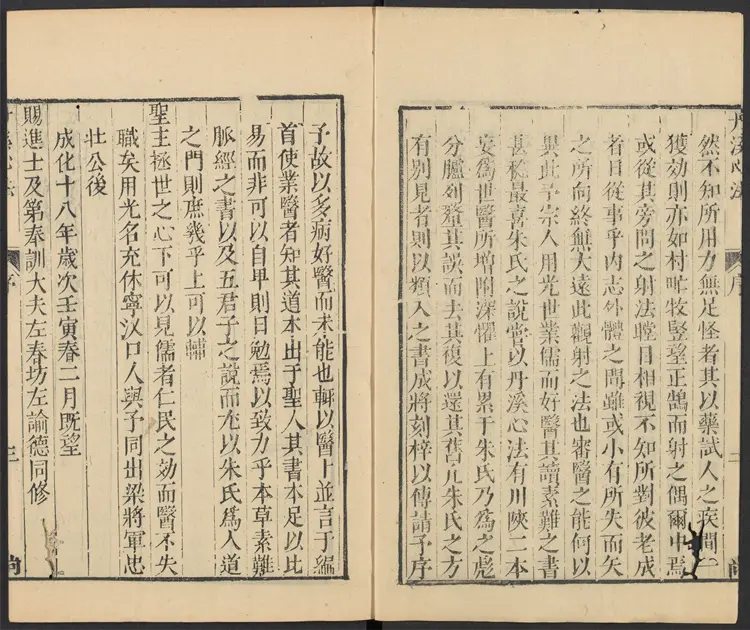 然不知所用力無足怪者其以藥試人之疾間一
獲効則亦如村甿牧豎望正鵠而射之偶爾中焉
或從其旁問之射法瞠目相視不知所對彼老成
者日從事乎内志外體之間雖或小有所失而矢
之所向終無大遠此觀射之法也審醫之能何以
異此予宗人用光世業儒而好醫其讀素難之書
甚稔最喜朱氏之說嘗以丹溪心法有川陝二本
妄爲世醫所增附深懼上有累于朱氏乃爲之彪
分臚列釐其誤而去其複以還其舊凡朱氏之方
有別見者則以類入之書成將刻梓以傳請予序
予故以多病好醫而未能也輒以醫卜並言于編
首使業醫者知其道本出于聖人其書本足以比
易而非可以自卑則日勉焉以致力乎本草素難
脈經之書以及五君子之說而尤以朱氏爲入道
之門則庶幾乎上可以輔
聖主拯世之心下可以見儒者仁民之効而醫不失
職矣用光名充休寧汊口人與予同出梁將軍忠
壯公後
成化十八年歲次壬寅春二月既望
賜進士及第奉訓大夫左春坊左諭德同修
序
三